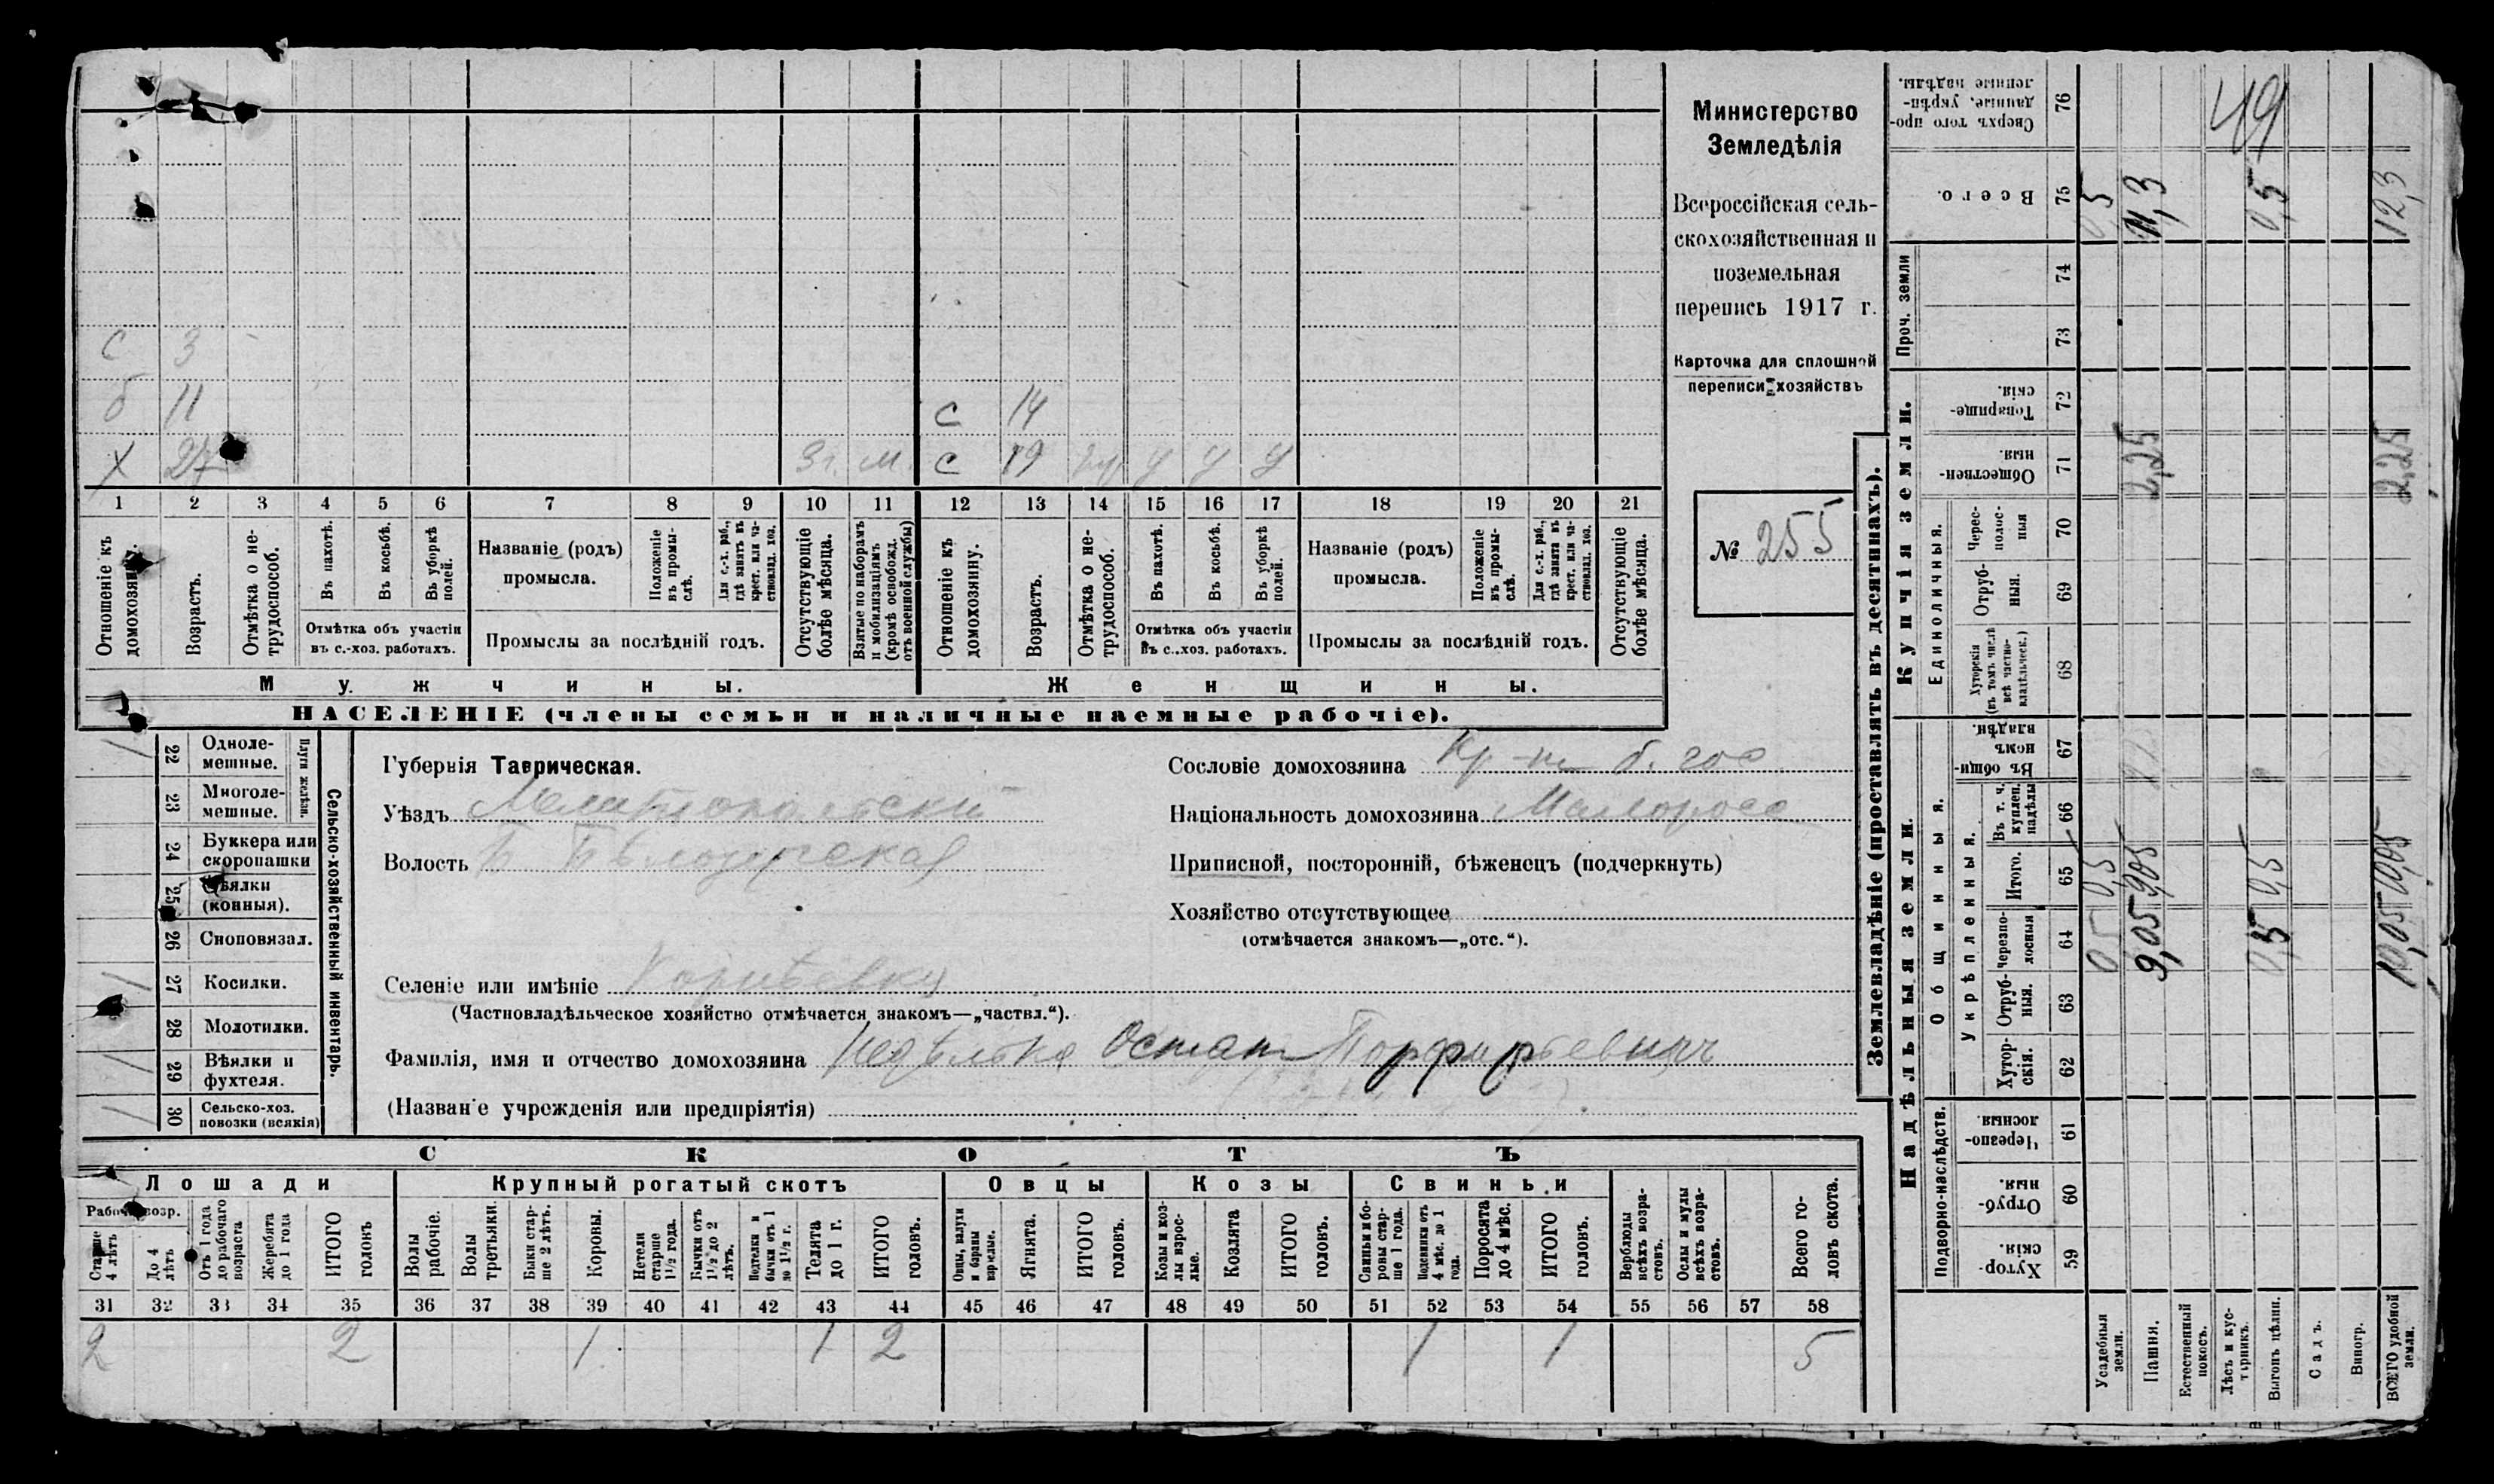 Министерство
Земледѣлія
Всероссійская сель-
скохозяйственная и
поземельная
перепись 1917 г.
Карточка для сплошной
переписи хозяйствъ
№ 255
С 3
б 11
С 14
Х 27 3 г. м. С 19 у у у
1 2 3 4 5 6 7 8 9 10 11 12 13 14 15 16 17 18 19 20 21
Отношеніе къ домохозяину.
Возрастъ.
Отмѣтка о не-трудоспособ.
Въ пахотѣ.
Въ косьбѣ.
Въ уборкѣ полей.
Отмѣтка объ участіи
въ с.-хоз. работахъ.
Названіе (родъ)
промысла.
Положеніе въ промы-слѣ.
Для с.-х. раб., гдѣ занятъ въ крест. или ча-стновлад. хоз.
Промыслы за послѣдній годъ.
Отсутствующіе болѣе мѣсяца.
Взятые по наборамъ и мобилизаціямъ (кромѣ освобожд. отъ военной службы)
Отношеніе къ домохозяину.
Возрастъ.
Отмѣтка о не-трудоспособ.
Въ пахотѣ.
Въ косьбѣ.
Въ уборкѣ полей.
Отмѣтка объ участіи
въ с..хоз. работахъ.
Названіе (родъ)
промысла.
Положеніе въ промы-слѣ.
Для с.-х. раб., гдѣ занята въ крест. или ча-стновлад. хоз.
Промыслы за послѣдній годъ.
Отсутствующіе болѣе мѣсяца.
Мужчины.
Женщины.
НАСЕЛЕНІЕ (члены семьи и наличные наемные рабочіе).
Сельско-хозяйственный инвентарь.
Плуги желѣзн.
/ 22 Одноле-мешные.
23 Многоле-мешные.
24 Буккера или скоропашки
25 Сѣялки (конныя).
26 Сноповязал.
/ 27 Косилки.
28 Молотилки.
/ 29 Вѣялки и фухтеля.
/ 30 Сельско-хоз. повозки (всякія)
Губернія Таврическая.
Уѣздъ Мелитопольскій
Волость Б Бѣлозерская
Селеніе или имѣніе
(Частновладѣльческое хозяйство отмѣчается знакомъ—„частвл.“).
Фамилія, имя и отчество домохозяина Недѣлько Остап Порфирьевичъ
(Названіе учрежденія или предпріятія)
Сословіе домохозяина Кр-нъ б. гос
Національность домохозяина Малоросс
Приписной, посторонній, бѣженецъ (подчеркнуть)
Хозяйство отсутствующее
(отмѣчается знакомъ—„отс.“).
СКОТЪ
Лошади
Крупный рогатый скотъ
Овцы
Козы
Свиньи
Рабоч. возр.
Старше 4 лѣтъ
До 4 лѣтъ
Отъ 1 года до рабочаго возраста
Жеребята до 1 года
ИТОГО головъ
Волы рабочіе.
Волы третьяки.
Быки стар-ше 2 лѣтъ.
Коровы.
Нетели старше 1½ года.
Бычки отъ 1½ до 2 лѣтъ.
Подтелки и бычки отъ 1 до 1½ г.
Телята до 1 г.
ИТОГО головъ.
Овцы, валухи и бараны взрослые.
Ягнята.
ИТОГО головъ.
Козы и коз-лы взрос-лые.
Козлята
ИТОГО головъ.
Свиньи и бо-ровы стар-ше 1 года.
Подсвинки отъ 4 мѣс. до 1 года.
Поросята до 4 мѣс.
ИТОГО головъ.
Верблюды всѣхъ возра-стовъ.
Ослы и мулы всѣхъ возра-стовъ.
Всего го-ловъ скота.
31 32 33 34 35 36 37 38 39 40 41 42 43 44 45 46 47 48 49 50 51 52 53 54 55 56 57 58
2 2 1 1 2 1 1 5
Землевладѣніе (проставлять въ десятинахъ).
Надѣльныя земли.
Купчія земли.
Проч. земли
Подворно-наслѣдств.
Общинныя.
Укрѣпленныя.
Единоличныя.
Хутор-скія. 59
Отруб-ныя. 60
Черезпо-лосныя 61
Хутор-скія. 62
Отруб-ныя. 63
Черезпо-лосныя 64
Итого. 65
Въ т. ч. куплен. надѣлы 66
Въ общи-номъ владѣн. 67
Хуторскія (въ томъ числѣ всѣ частно-владѣльческ.) 68
Отруб-ныя. 69
Черес-полос-ныя 70
Обществен-ныя. 71
Товарище-скія. 72
73
74
Всего. 75
Сверхъ того про-данные, укрѣп-ленные надѣлы. 76
Усадебныя земли. 0,5 0,5 0,5
Пашня. 9,05 9,05 2,25 11,3
Естественный покосъ.
Лѣсъ и кус-тарникъ.
Выгонъ цѣлин. 0,5 0,5 0,5
Садъ.
Виногр.
ВСЕГО удобной земли. 10,05 10,05 2,25 12,3
49